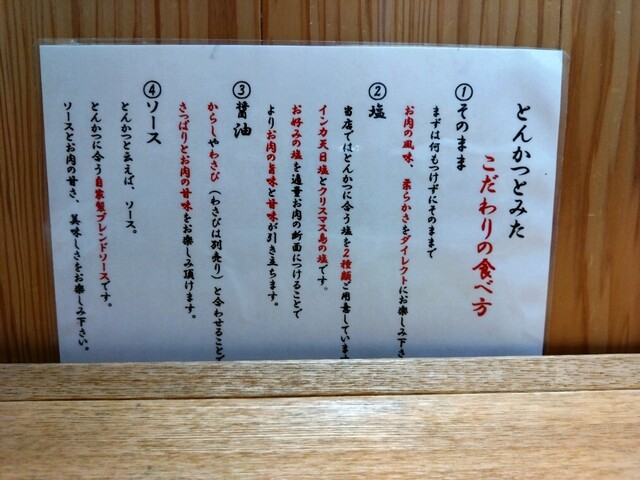 とんかつとみた
こだわりの食べ方
①そのまま
まずは何もつけずにそのままで
お肉の風味、柔らかさをダイレクトにお楽しみ下さ
②塩
当店ではとんかつに合う塩を２種類ご用意しています
インカ天日塩とクリスマス島の塩です。
お好みの塩を適量お肉の断面につけることで
よりお肉の旨味と甘味が引き立ちます。
③醤油
からしやわさび（わさびは別売り）と合わせることで
さっぱりとお肉の甘味をお楽しみ頂けます。
④ソース
とんかつと云えば、ソース。
とんかつに合う自家製ブレンドソースです。
ソースとお肉の甘さ、美味しさをお楽しみ下さい。